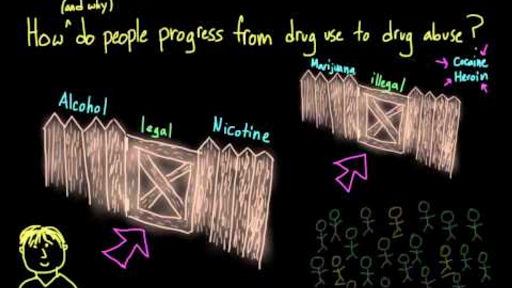 (and why)
How ^ do people progress from drug use to drug abuse?
Alcohol
legal
Nicotine
Marijuana
illegal
Cocaine
Heroin